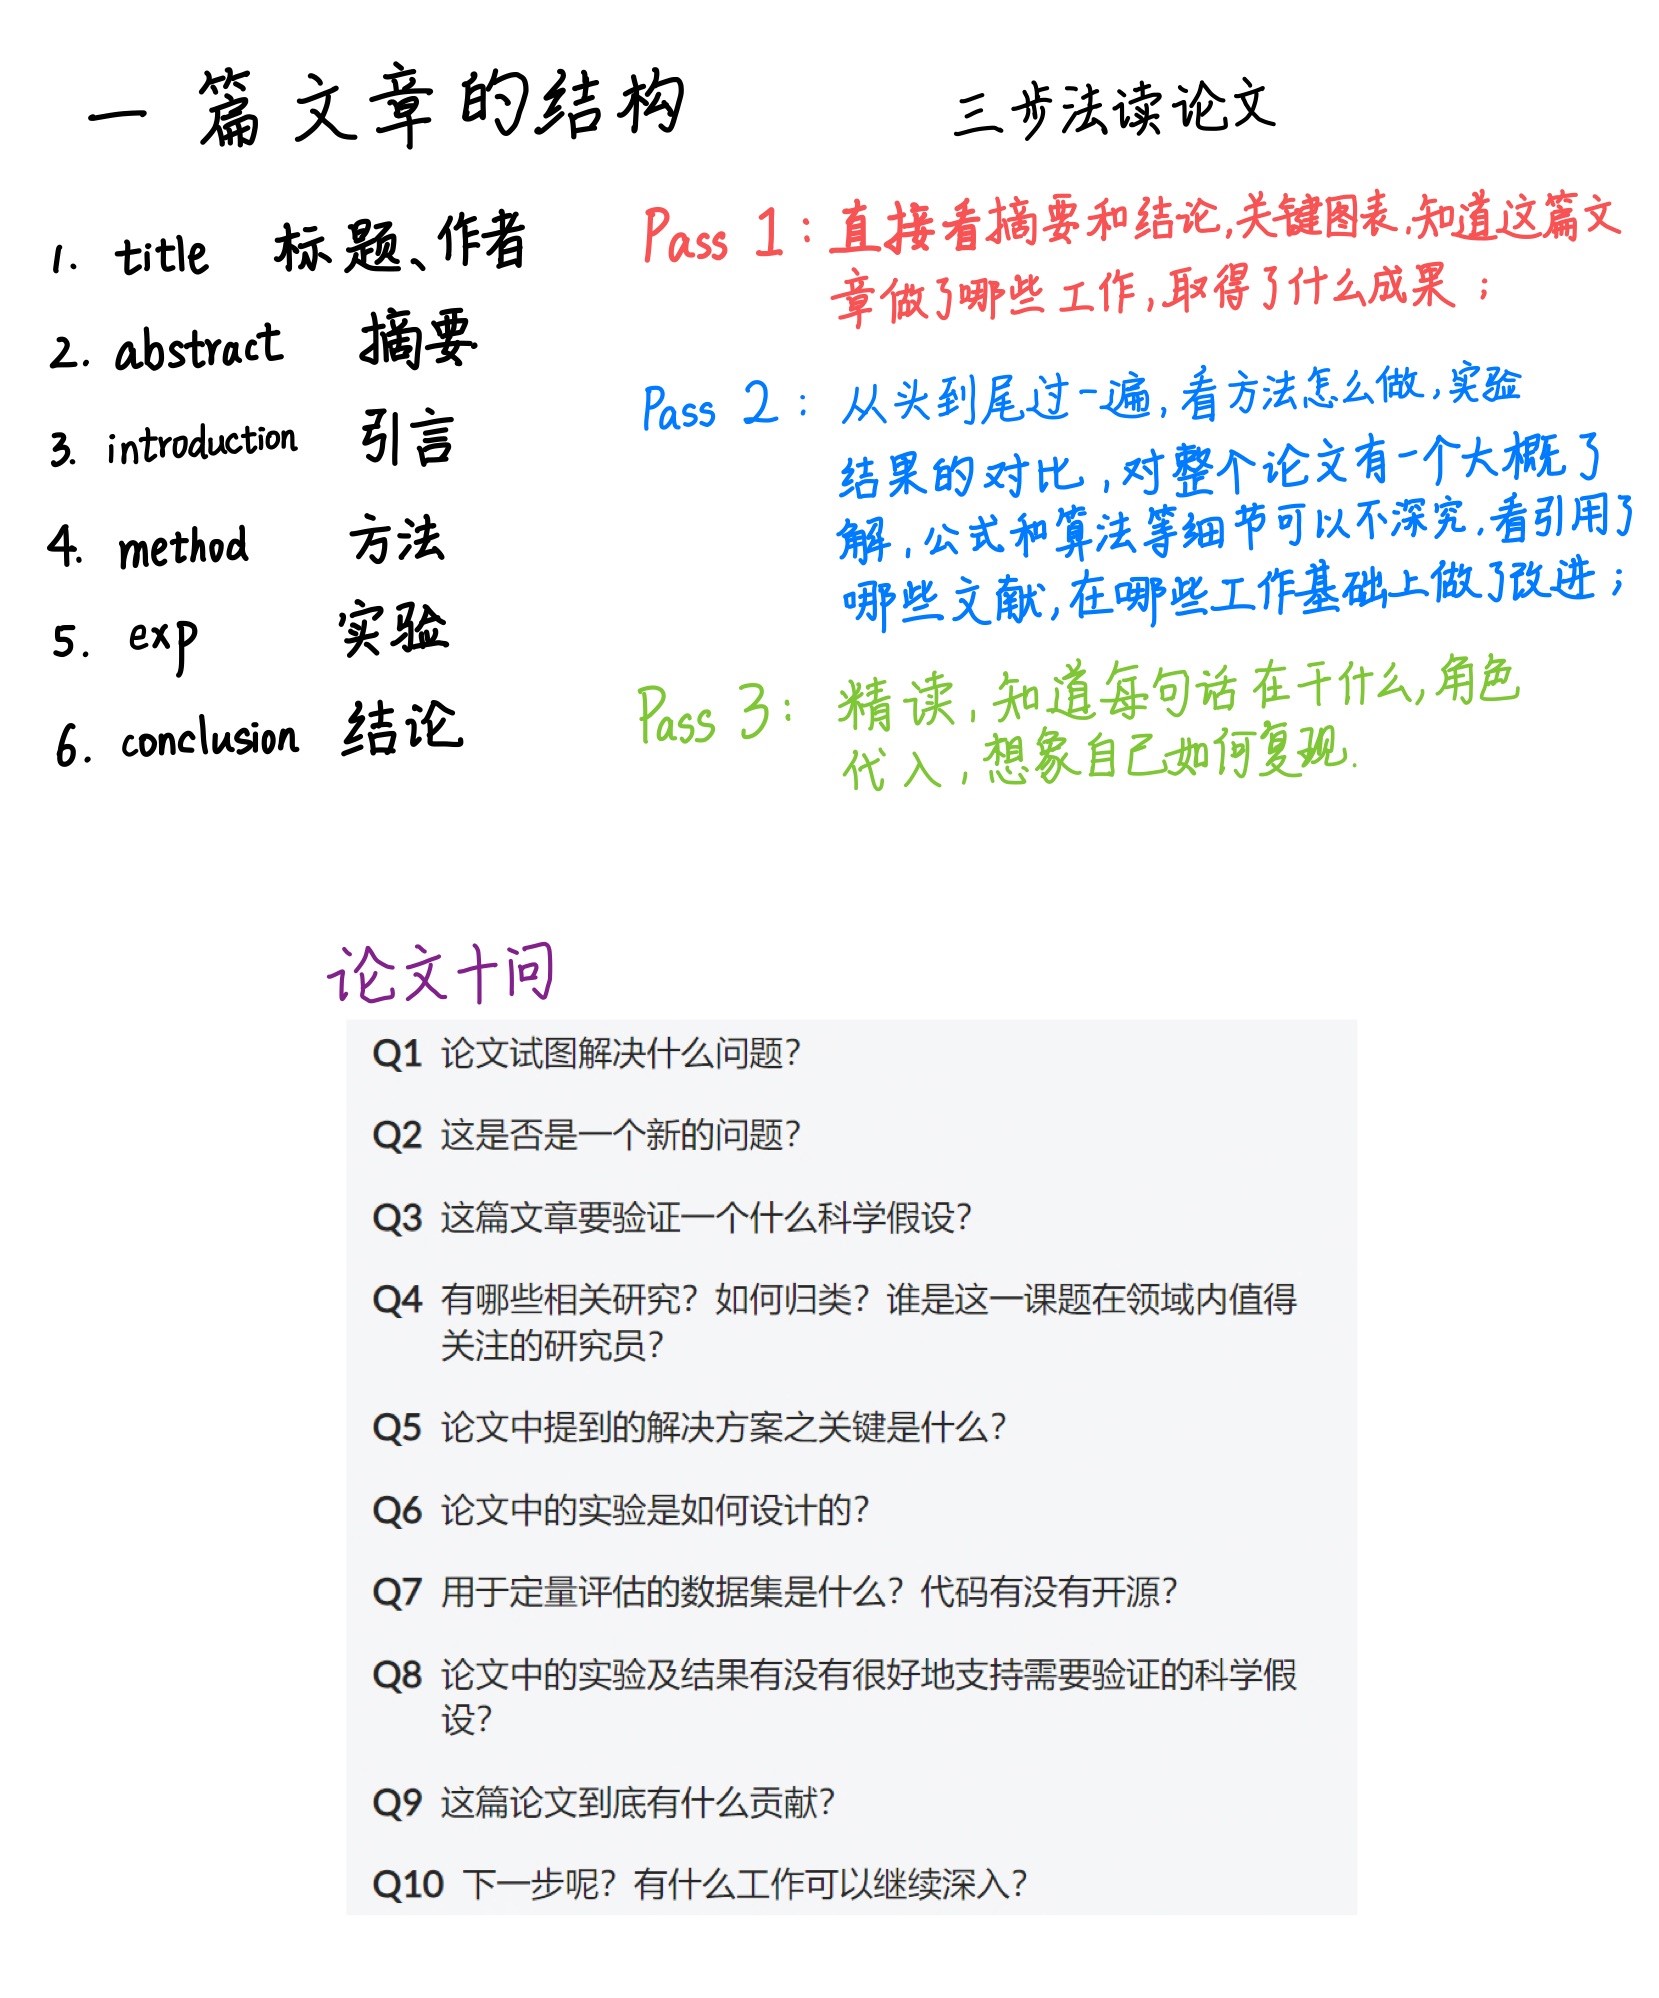 一篇文章的结构
1. title 标题、作者
2. abstract 摘要
3. introduction 引言
4. method 方法
5. exp 实验
6. conclusion 结论
三步法读论文
Pass 1：直接看摘要和结论,关键图表,知道这篇文
章做了哪些工作,取得了什么成果；
Pass 2：从头到尾过一遍,看方法怎么做,实验
结果的对比,对整个论文有一个大概了
解,公式和算法等细节可以不深究,看引用了
哪些文献,在哪些工作基础上做了改进；
Pass 3：精读,知道每句话在干什么,角色
代入,想象自己如何复现.
论文十问
Q1 论文试图解决什么问题？
Q2 这是否是一个新的问题？
Q3 这篇文章要验证一个什么科学假设？
Q4 有哪些相关研究？如何归类？谁是这一课题在领域内值得
关注的研究员？
Q5 论文中提到的解决方案之关键是什么？
Q6 论文中的实验是如何设计的？
Q7 用于定量评估的数据集是什么？代码有没有开源？
Q8 论文中的实验及结果有没有很好地支持需要验证的科学假
设？
Q9 这篇论文到底有什么贡献？
Q10 下一步呢？有什么工作可以继续深入？